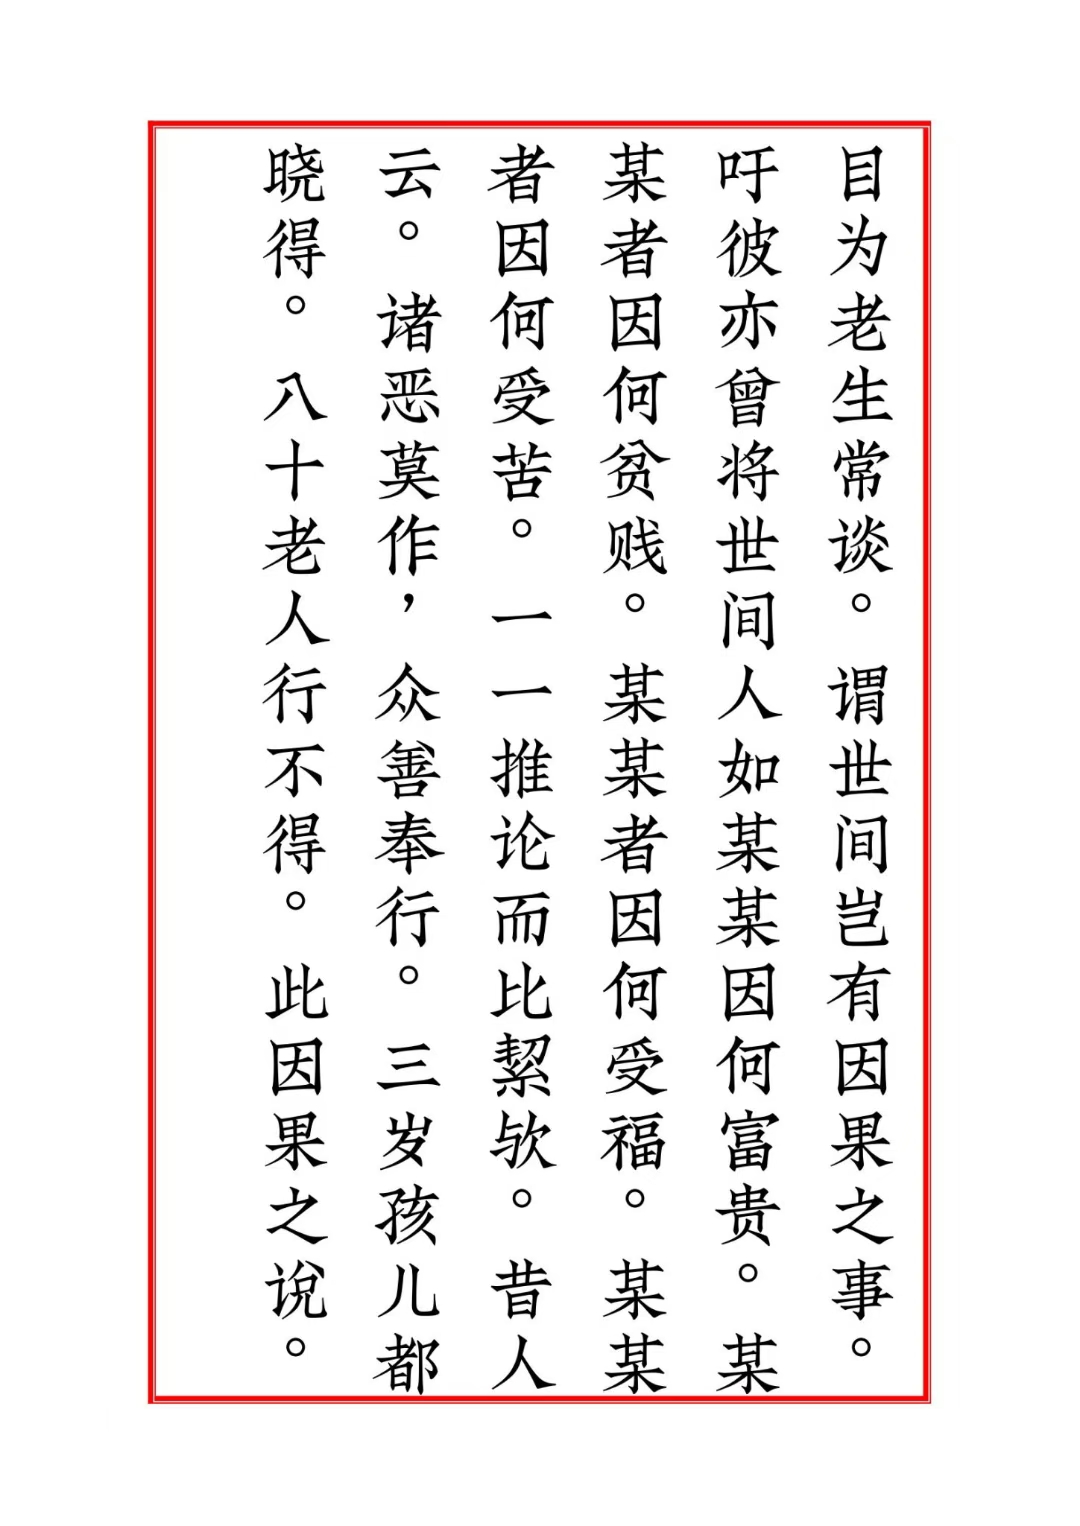 目为老生常谈。谓世间岂有因果之事。
吁彼亦曾将世间人如某某因何富贵。某
某者因何贫贱。某某者因何受福。某某
者因何受苦。一一推论而比絜欤。昔人
云。诸恶莫作，众善奉行。三岁孩儿都
晓得。八十老人行不得。此因果之说。